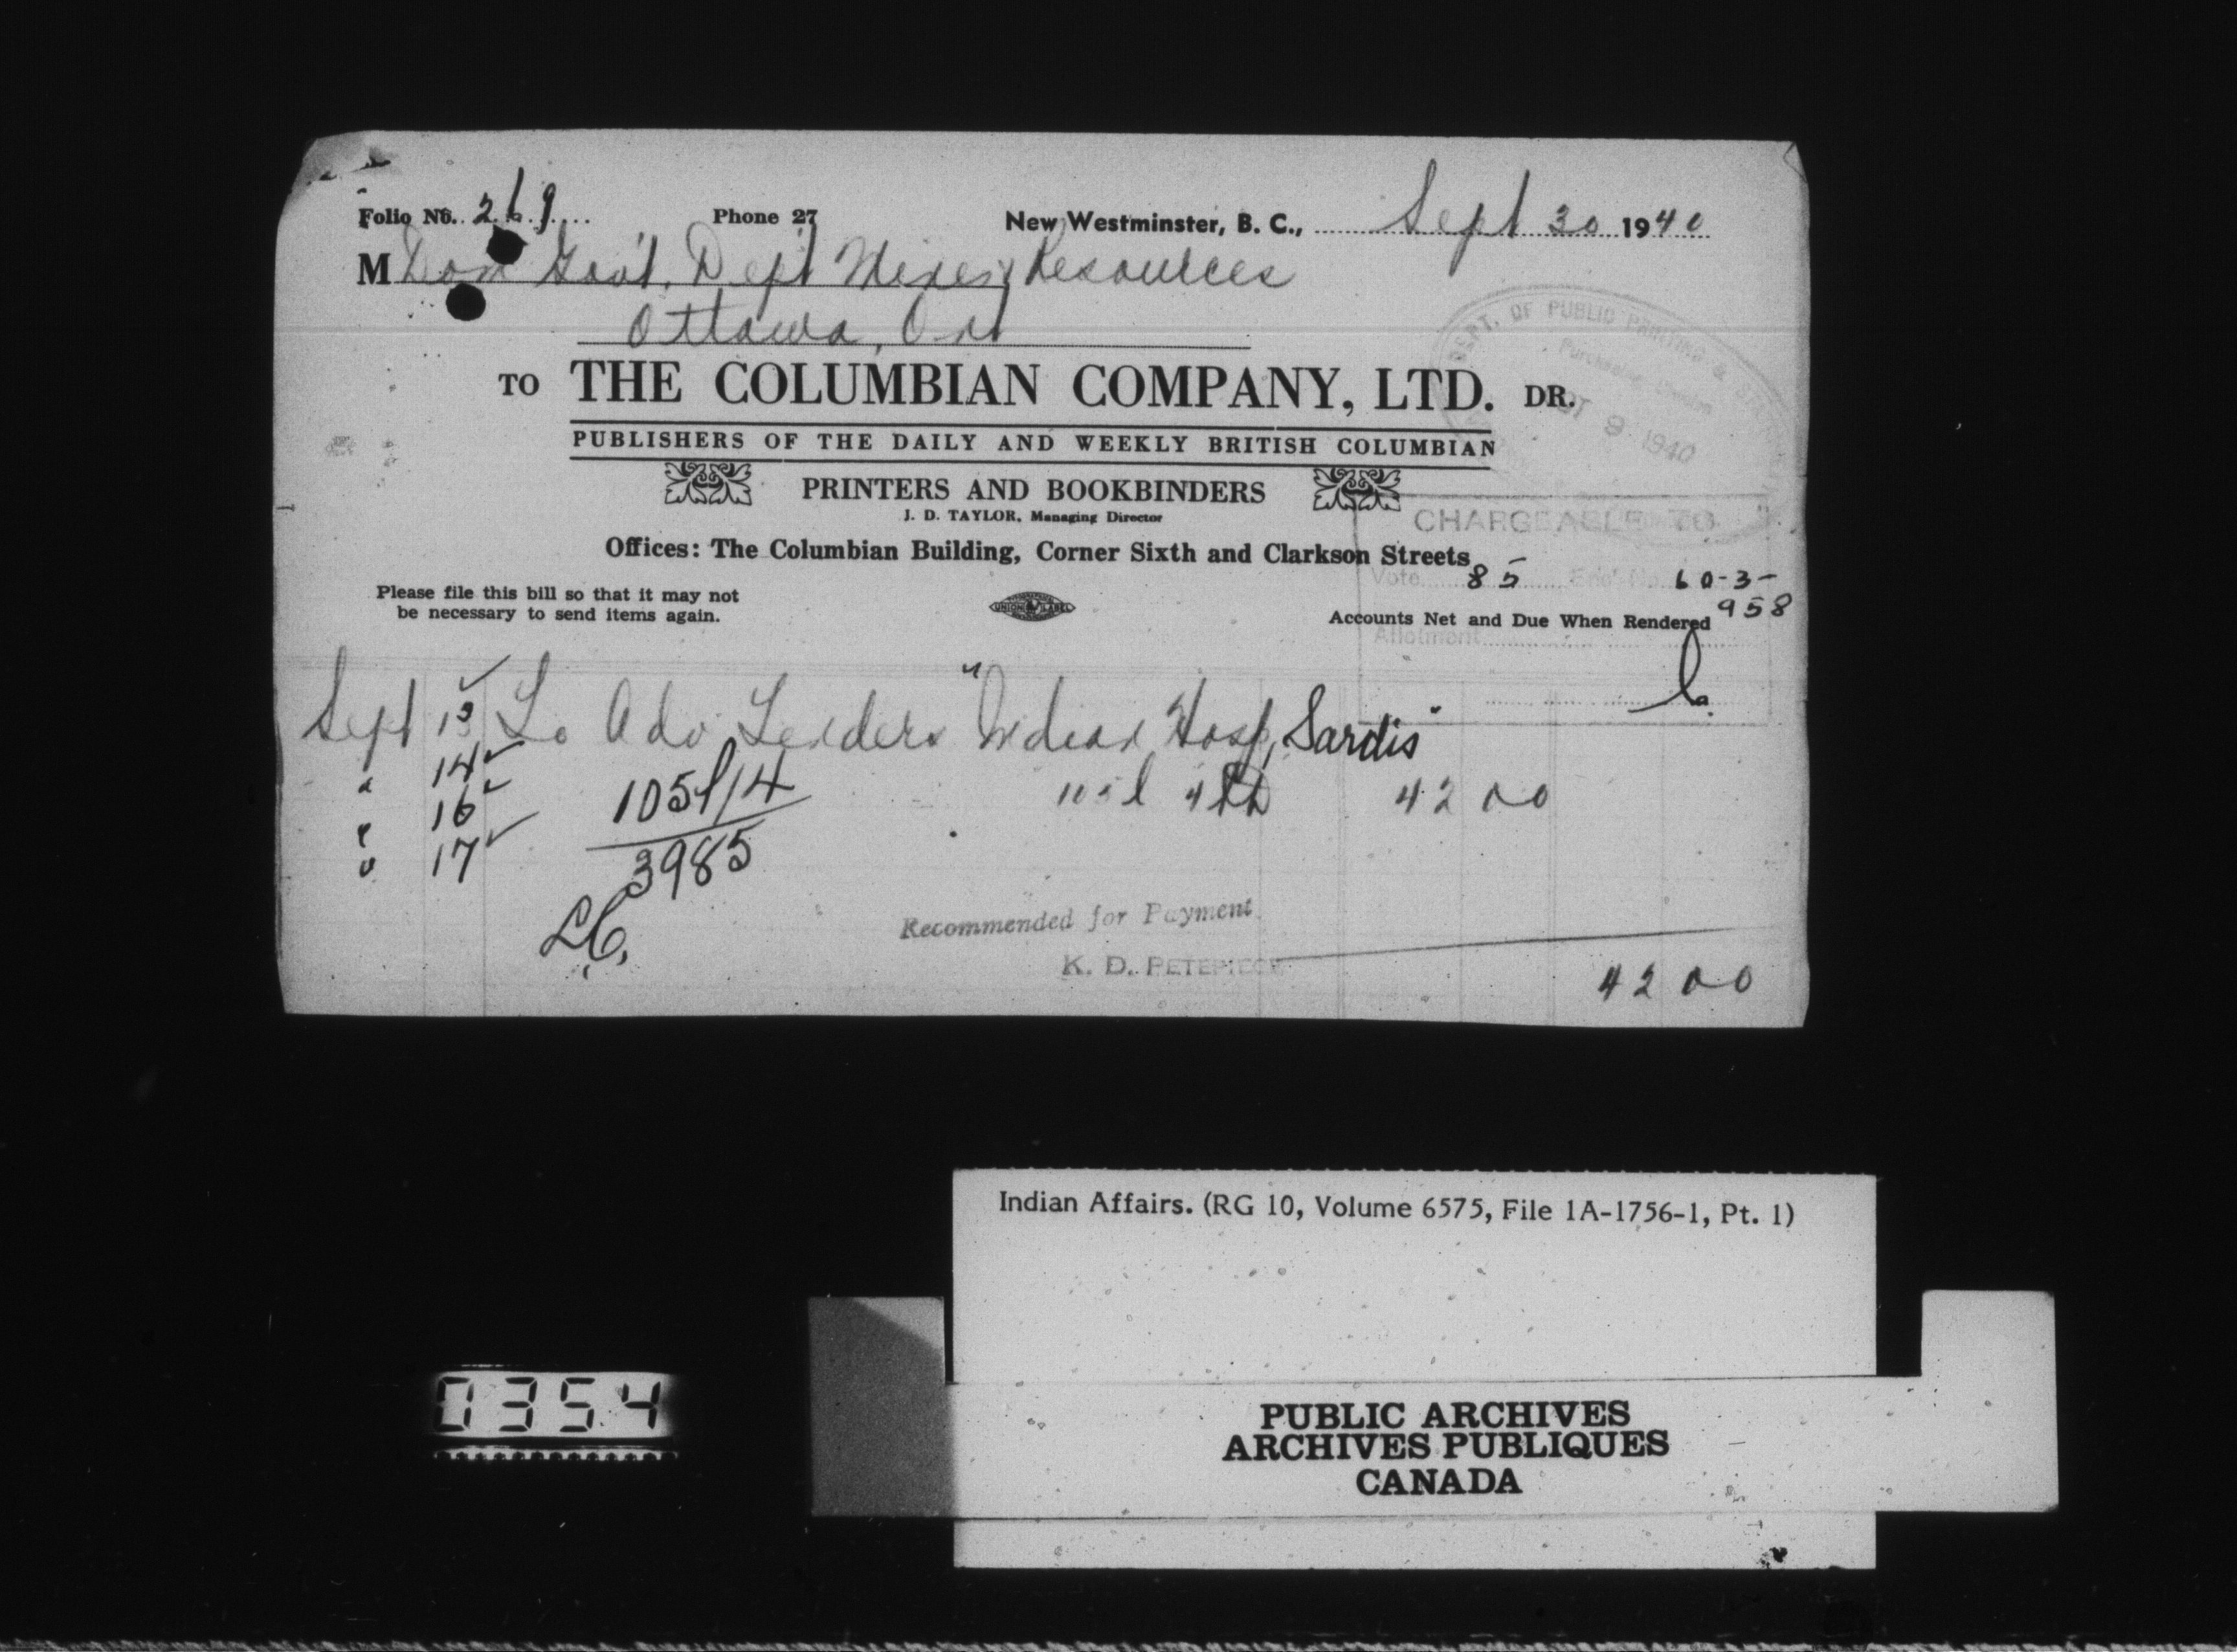 Folio No. 269 Phone 27 New Westminster, B. C., Sept 30 1940
M Dom Gov't. Dept Mines & Resources
Ottawa, Ont
DEPT. OF PUBLIC PRINTING &
9 1940
TO THE COLUMBIAN COMPANY, LTD. DR.
PUBLISHERS OF THE DAILY AND WEEKLY BRITISH COLUMBIAN
PRINTERS AND BOOKBINDERS
J. D. TAYLOR, Managing Director
CHARGEABLE TO
Offices: The Columbian Building, Corner Sixth and Clarkson Streets
Vote 85 60-3-
958
Please file this bill so that it may not
be necessary to send items again.
UNION LABEL
Accounts Net and Due When Rendered
Allotment
Sept 13 To Adv Tenders "Indian Hosp, Sardis"
" 14 105l/14 105l 42 00
" 16
" 17 3985
LC.
Recommended for Payment
K. D. PETEPIECE
42 00
Indian Affairs. (RG 10, Volume 6575, File 1A-1756-1, Pt. 1)
0354
PUBLIC ARCHIVES
ARCHIVES PUBLIQUES
CANADA